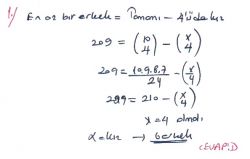 1/ En az bir erkek = Tamamı - 4'üde kız
209 = (10 4) - (x 4)
209 = 10.9.8.7/24 - (x 4)
209 = 210 - (x 4)
x = 4 olmalı
x = kız → 6 erkek
CEVAP: D